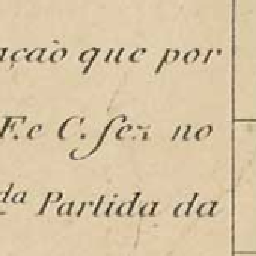 ação que por
F. e C. fez no
da Partida da